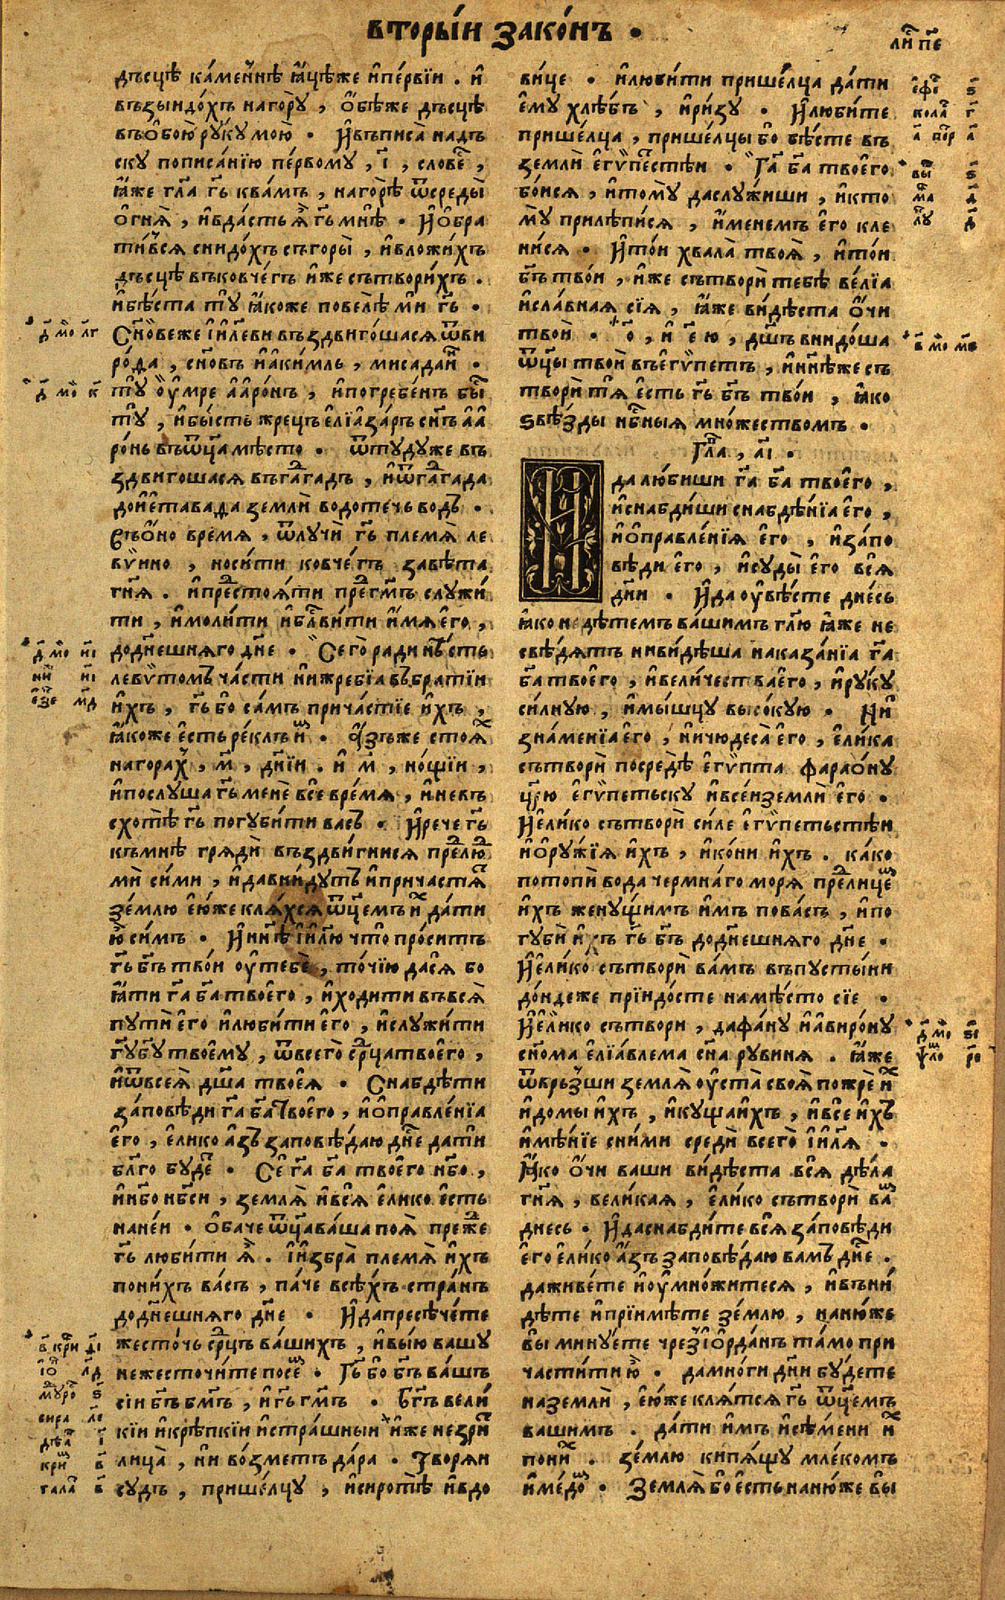 вторы́и зако́нъ ·
ли́ пе
дъсцѣ ка́меннѣ ꙗ҆́цѣже и҆пе́рвїи . и҆
възыидо́хъ нагорꙋ̀ , ѻ҆́бѣже дъсцѣ
въѻ҆бою̀ рꙋ́кꙋ мою̀ · И҆въписа̀ надъ
скꙋ пописа́нїю пе́рвомꙋ , і҃ , слове́ ,
ꙗ҆́же гл҃а гь҃ ква́мъ , нагорѣ̀ ѿсреды̀
ѻ҆гнѧ̀ , и҆вда́стъ ѧ҆̀ гь҃ мнѣ̀ · И҆ѻ҆бра
ти́всѧ снидо́хъ съгоры̀ , и҆вложи́хъ
дъсцѣ въковче́гъ и҆́же сътвори́хъ .
и҆бѣ́ста тꙋ̀ ꙗ҆́коже повелѣ̀ ми гь҃ ·
Сн҃овеже і҆и҃леви въздвиго́шасѧ ѿви
ро́да , сн҃овъ и҆аки́мль , мисада́и ·
тꙋ̀ ᲂу҆́мре а҆аро́нъ , и҆погребе́нъ бы̀
тꙋ̀ , и҆бы́сть жрецъ є҆лїаза́ръ сн҃ъ а҆а҆
ро́нь въѿц҃а мѣ́сто · ѿтꙋдꙋже въ
здвигошасѧ въга҆га́дъ , и҆ѿга҆га́да
дои҆е҆тава́да землѝ водоте́чь во́дъ ·
Въѻ҆́но вре́мѧ , ѿлꙋчѝ гь҃ племѧ̀ ле
вѵ́ино , носи́ти ковче́гъ завѣ́та
гн҃ѧ . и҆престоѧ́ти преⷣгм҃ъ слꙋжи́
ти , и҆моли́ти и҆бл҃ви́ти и҆́мѧ є҆го̀ ,
додн҃ешнѧго дн҃е · Сего̀ ради нѣ́сть
левѵ́томъ ча́сти нижребїа въбра́тїи
и҆́хъ , гь҃ бо са́мъ прича́стїе и҆́хъ ,
ꙗ҆́коже є҆́сть ре́клъ и҆́м · А҆́зъже стоѧ́х
нагорах̾ , м҃ , дн҃їи . и҆ м҃ , но́щїи ,
и҆послꙋша гь҃ менѐ все вре́мѧ , и҆невъ
схотѣ̀ гь҃ погꙋби́ти васъ · И҆рече гь҃
къмнѣ̀ грѧдѝ въздви́гнисѧ преⷣлю
мѝ си́ми , и҆давни́дꙋтъ и҆причастѧ́т
зе́млю є҆ю́же клѧ́хсѧ ѿц҃емъ и҆́х да́ти
ю҆̀ си́мъ · И҆нн҃ѣ і҆и҃лю что̀ про́ситъ
гь҃ бг҃ъ тво́и ᲂу҆тебѐ , то́чїю да сѧ̀ бо
ꙗ҆́ти га҃ ба҃ твоего̀ , и҆ходи́ти въвсѧ̀
пꙋтѝ є҆го̀ и҆люби́ти є҆го̀ , и҆слꙋжи́ти
гꙋ҃бꙋ҃ твоемꙋ , ѿвсего̀ ср҃цатвоего̀ ,
и҆ѿвсеѧ̀ дш҃а твоеѧ̀ · Снабдѣ́ти
за́повѣди га҃ ба҃ твоего̀ , и҆ѻ҆правле́нїа
є҆го̀ , є҆ли́ко а҆́зъ заповѣ́даю дн҃е да́ти
бл҃го бꙋ́де · Се га҃ ба҃ твоего̀ нб҃о ,
и҆нб҃о нб҃си , землѧ̀ и҆всѧ̀ є҆ли́ко є҆́сть
нане́и · ѻ҆́баче ѿц҃ава́ша поѧ̀ пре́же
гь҃ люби́ти ѧ҆̀ . І҆и҆збра̀ племѧ̀ и҆́хъ
пони́хъ ва́съ , па́че всѣ́хъ стра́нъ
додн҃ешнѧго дн҃е · И҆дапресѣче́те
жесто́чь ср҃цъ вашихъ , и҆вы́ю вашꙋ
нежесточи́те посе́м · Гь҃ бо бг҃ъ ва́шъ
сі́и бг҃ъ бм҃ъ , и҆гь҃ гм҃ъ · Бг҃ъ вели́
кїи и҆крѣ́пкїи и҆стра́шныи и҆́же незри́т
лица̀ , ни во́зметъ да́ра · Творѧи
сꙋдъ , пришелцꙋ , и҆сиротѣ̀ и҆вдо
ви́це · и҆люби́ти прише́лца да́ти
є҆мꙋ хлѣ́бъ , и҆ри́зꙋ · И҆люби́те
прише́лца , прише́лцы бо бѣ́сте въ
землѝ є҆гѵ́пестѣи · Га҃ ба҃ твоего̀
бо́исѧ , и҆томꙋ̀ даслꙋ́жиши , и҆кто
мꙋ̀ прилѣпи́сѧ , и҆́менемъ є҆го кле
ни́сѧ · И҆то́и хвала̀ твоѧ̀ , и҆то́и
бг҃ъ тво́и , и҆́же сътворѝ тебѣ̀ ве́лїа
и҆сла́внаѧ сїѧ̀ , ꙗ҆́же ви́дѣста ѻ҆́чи
твоѝ · ѻ҃ , и҆ є҃ ю , дш҃ъ внидо́ша
ѿц҃ы твоѝ въе҆гѵ́петъ , и҆нн҃ѣже съ
творѝ тѧ̀ є҆сть гь҃ бг҃ъ тво́и , ꙗ҆́ко
ѕвѣ́зды нб҃ныѧ мно́жествомъ ·
Гл҃а , а҃і ·
И҆
да лю́биши га҃ ба҃ твоего̀ ,
и҆снабди́ши снабдѣ́нїа є҆го̀ ,
и҆ѻ҆правле́нїѧ є҆го̀ , и҆за́по
вѣди є҆го̀ , и҆сꙋды̀ є҆го всѧ̀
дн҃и · И҆да ᲂу҆вѣ́сте дне́сь
ꙗ҆́ко не дѣ́темъ вашимъ гл҃ю ꙗ҆́же не
свѣ́дѧтъ нивидѣша наказа́нїа га҃
ба҃ твоего̀ , и҆вели́чества є҆го̀ , и҆рꙋкꙋ
си́лнꙋю , и҆мы́шцꙋ высо́кꙋю · Ни
зна́менїа є҆го̀ , ничюдеса̀ є҆го̀ , є҆ли́ка
сътворѝ посредѣ̀ є҆гѵ́пта фараѻ҆нꙋ
цр҃ю є҆гѵ́петьскꙋ и҆все́иземлѝ є҆го̀ ·
И҆е҆ли́ко сътворѝ си́ле є҆гѵ́петьстѣи
и҆ѻ҆рꙋ́жїѧ и҆́хъ , и҆ко́ни и҆́хъ . ка́ко
потопѝ вода̀ чермна́го морѧ̀ преⷣлице́м
и҆́хъ женꙋ́щимъ и҆́мъ пова́съ , и҆по
гꙋбѝ и҆́хъ гь҃ бг҃ъ додн҃ешнѧго дн҃е ·
И҆е҆ли́ко сътворѝ ва́мъ въпꙋсты́ни
до́ндеже прїидо́сте намѣ́сто сїе ·
И҆е҆ли́ко сътвори , дафа́нꙋ и҆авиро́нꙋ
сн҃ома є҆лїа́влема сн҃а рꙋвинѧ . ꙗ҆́же
ѿврь́зши землѧ̀ ᲂу҆ста̀ своѧ̀ пожрѐ и҆́х
и҆до́мы и҆́хъ , и҆кꙋща и҆́хъ , и҆все и҆́хъ
и҆мѣ́нїе сни́ми средѝ всего̀ і҆и҃лѧ ·
Ꙗ҆́ко ѻ҆́чи ва́ши ви́дѣста всѧ̀ дѣла
гн҃ѧ , вели́каѧ , є҆ли́ко сътворѝ ва́м
дне́сь · И҆даснабди́те всѧ̀ за́повѣди
є҆го є҆ли́ко а҆́зъ заповѣ́даю вамъ дн҃е .
даживе́те и҆ᲂу҆мно́житесѧ , и҆въни́
дѣте и҆прїи́мѣте зе́млю , наню́же
вы минꙋ́ете чрез̾іѻ҆рда́нъ та́мо при
части́ти ю҆̀ · дамно́ги дни бꙋ́дете
наземлѝ , є҆ю́же клѧ́тсѧ гь҃ ѿц҃емъ
вашимъ . да́ти и҆́мъ и҆сѣ́мени и҆́х
пони́х . зе́млю кипѧ́щꙋ млеко́мъ
и҆ме́дом · Землѧ̀ бо є҆сть наню́же вы